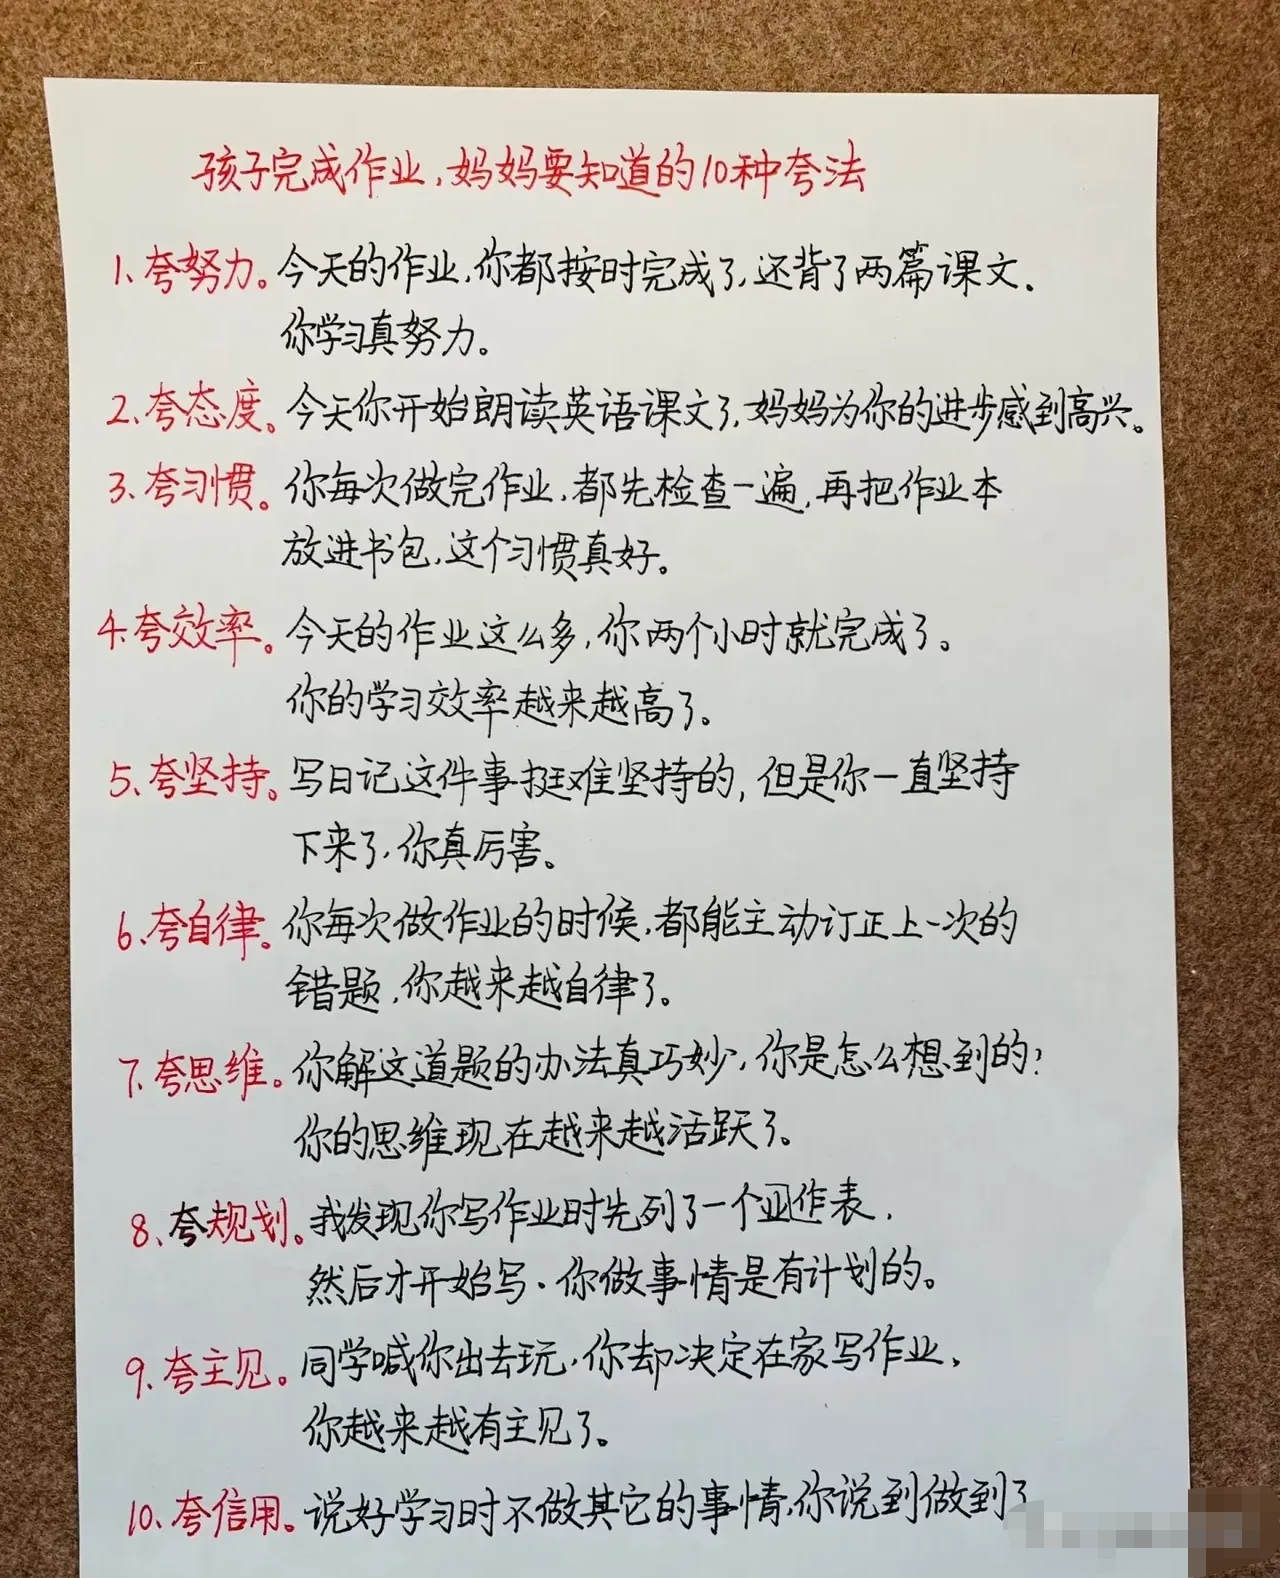 孩子完成作业,妈妈要知道的10种夸法
1、夸努力。今天的作业,你都按时完成了,还背了两篇课文.
你学习真努力。
2、夸态度。今天你开始朗读英语课文了,妈妈为你的进步感到高兴。
3、夸习惯。你每次做完作业,都先检查一遍,再把作业本
放进书包,这个习惯真好。
4、夸效率。今天的作业这么多,你两个小时就完成了。
你的学习效率越来越高了。
5、夸坚持。写日记这件事挺难坚持的,但是你一直坚持
下来了,你真厉害。
6、夸自律。你每次做作业的时候,都能主动订正上一次的
错题,你越来越自律了。
7、夸思维。你解这道题的办法真巧妙,你是怎么想到的?
你的思维现在越来越活跃了。
8、夸规划。我发现你写作业时先列了一个作表,
然后才开始写.你做事情是有计划的。
9、夸主见。同学喊你出去玩,你却决定在家写作业,
你越来越有主见了。
10、夸信用。说好学习时不做其它的事情,你说到做到了